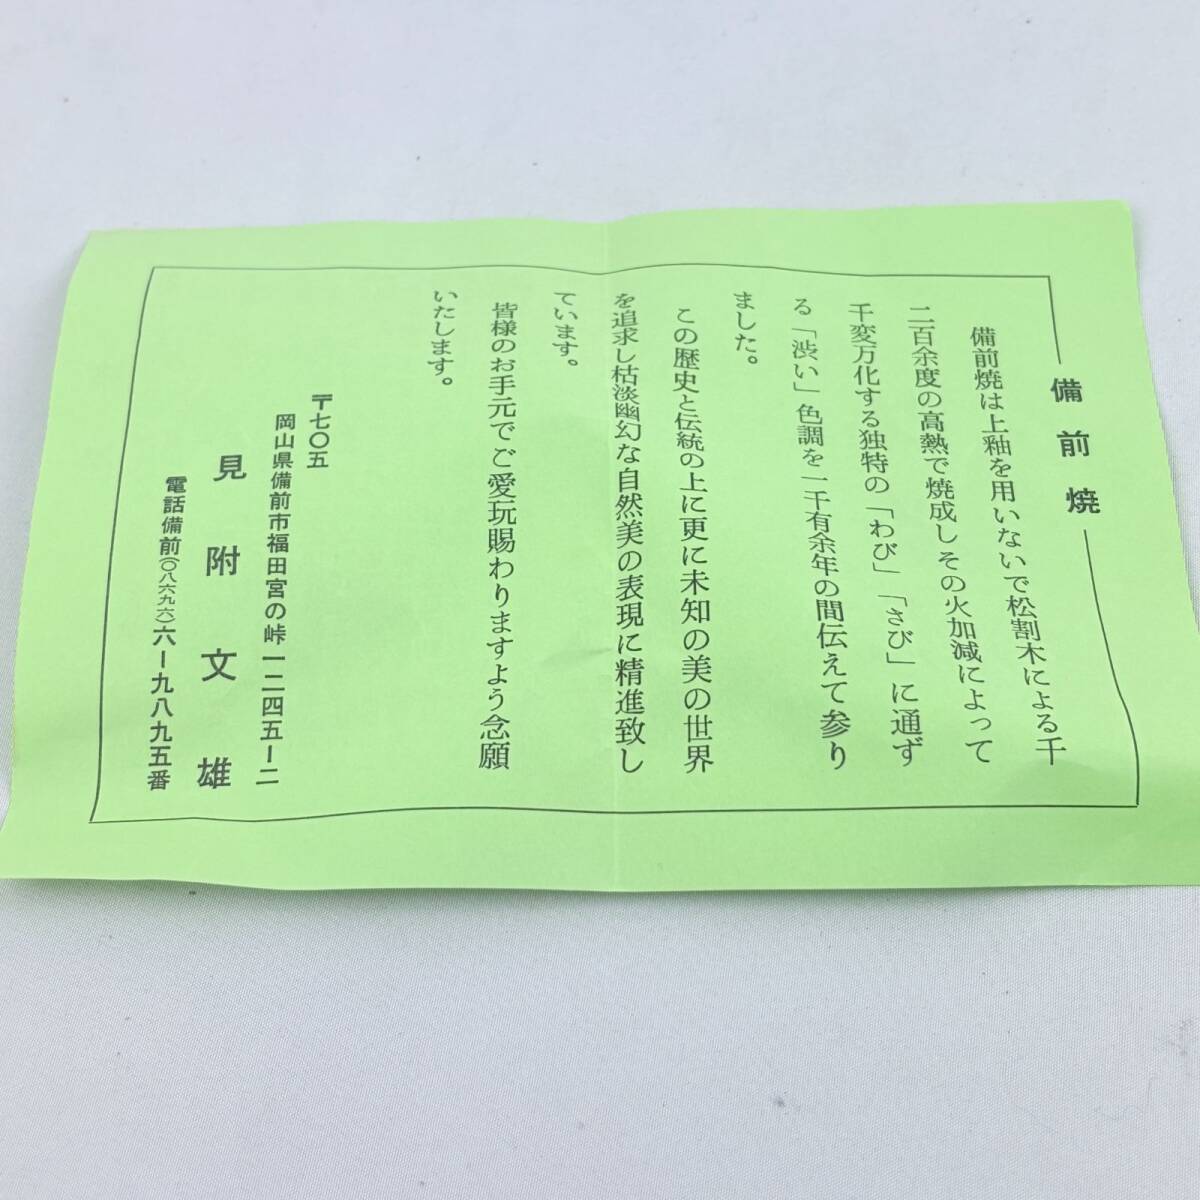 備前焼
備前焼は上釉を用いないで松割木による千
二百余度の高熱で焼成しその火加減によって
千変万化する独特の「わび」「さび」に通ず
る「渋い」色調を一千有余年の間伝えて参り
ました。
この歴史と伝統の上に更に未知の美の世界
を追求し枯淡幽幻な自然美の表現に精進致し
ています。
皆様のお手元でご愛玩賜わりますよう念願
いたします。
〒七〇五
岡山県備前市福田宮の峠一二四五ー二
見附文雄
電話備前(〇八六九六)六ー九八九五番